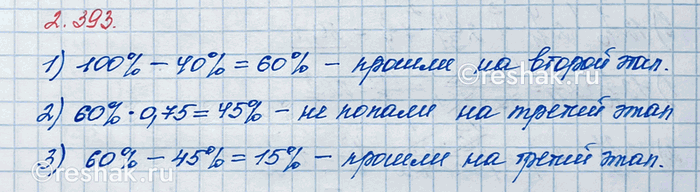 2.393.
1) 100% − 40% = 60% – прошли на второй этап.
2) 60% · 0,75 = 45% – не попали на третий этап
3) 60% − 45% = 15% – прошли на третий этап.
reshak.ru